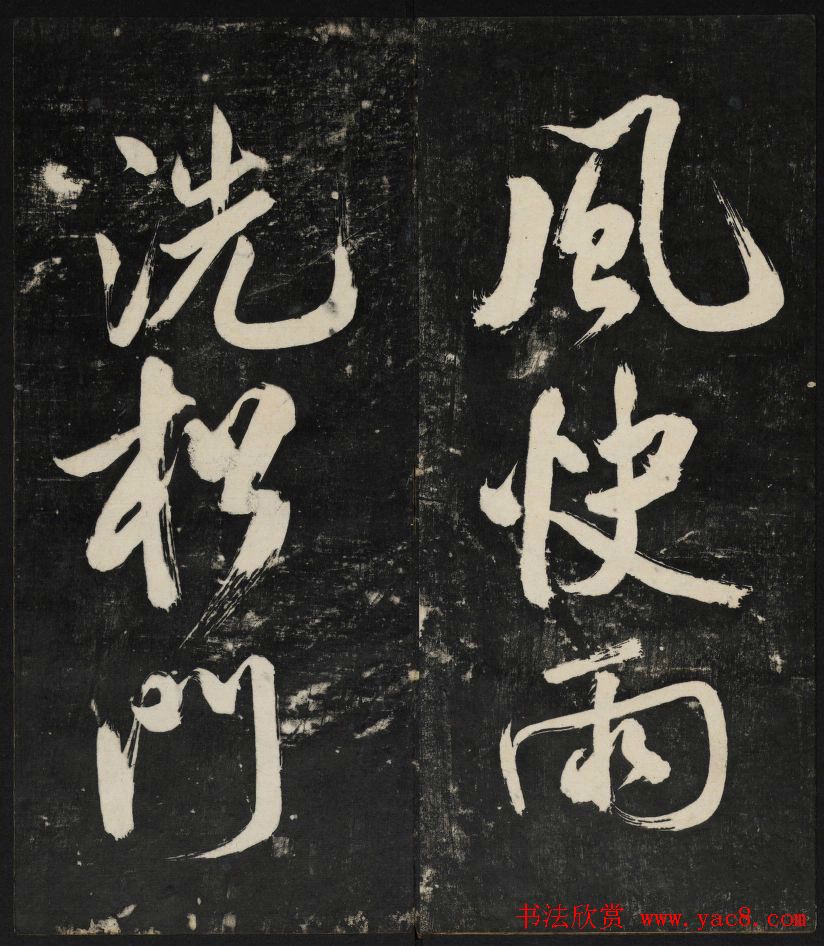 風快雨
洗門
书法欣赏 www.yac8.com